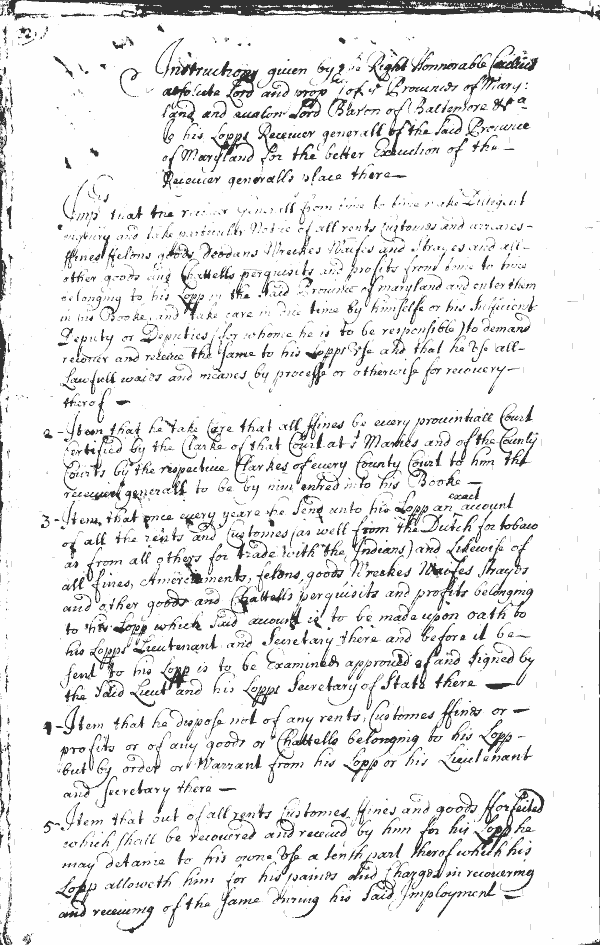 2
Instructions given by the Right Honnorable Cecilius
absolute Lord and prop of ye Provinces of Mary:
land and avalon Lord Baron of Baltemore &ca
to his Lopps Receiver generall of the said Province
of Maryland for the better Execution of the
Receiver generalls place there
Imps that the receiver generall from time to time make Diligent
inquiry and take particuler Notice of all rents Customes and arreares
ffines felons goods Deodans Wreckes Waifes and Strayes and all
other goods and Chattells perquisits and profits from time to time
belonging to his Lopp in the said Province of maryland and enter them
in his Booke and take care in Due time by himselfe or his Sufficient
Deputy or Deputies (for whome he is to be responsible) to demand
recover and receive the same to his Lopps vse and that he vse all
Lawfull waies and meanes by processe or otherwise for recovery
therof
2 Item that he take Care that all ffines be every provintiall Court
certified by the Clarke of that Court at St Maries and of the County
Courts by the respective Clarkes of every County Court to him the
receiver generall to be by him entred into his Booke
3 Item that once every yeare he send unto his Lopp an exact account
of all the rents and Customes (as well from the Dutch for tobaco
as from all others for trade with the Indians) and Likewise of
all fines, Amerciaments, felons, goods Wreckes Waifes Strayes
and other goods and Chattells perquisits and profits belonging
to his Lopp which said account is to be made upon oath to
his Lopps Lieutenant and Secretary there and before it be
sent to his Lopp is to be Examined approved of and signed by
the said Lieut and his Lopps Secretary of State there
4 Item that he dispose not of any rents, Customes ffines or
profits or of any goods or Chattells belonging to his Lopp
but by order or Warrant from his Lopp or his Lieutenant
and Secretary there
5 Item that out of all rents Customes ffines and goods fforfeited
which shall be recovered and received by him for his Lopp he
may detaine to his owne vse a tenth part therof which his
Lopp alloweth him for his paines and Charges in recovering
and receiving of the same during his said Imployment